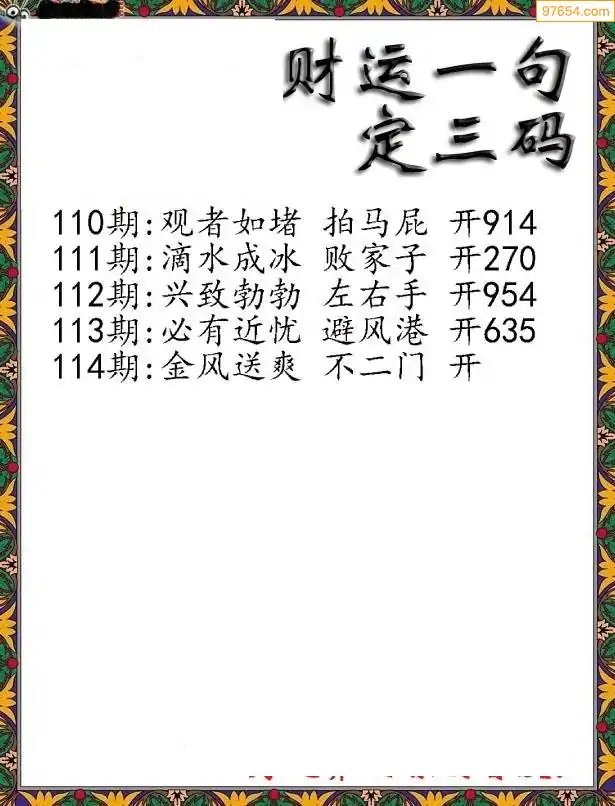 97654.com
财运一句
定三码
110期:观者如堵 拍马屁 开914
111期:滴水成冰 败家子 开270
112期:兴致勃勃 左右手 开954
113期:必有近忧 避风港 开635
114期:金风送爽 不二门 开